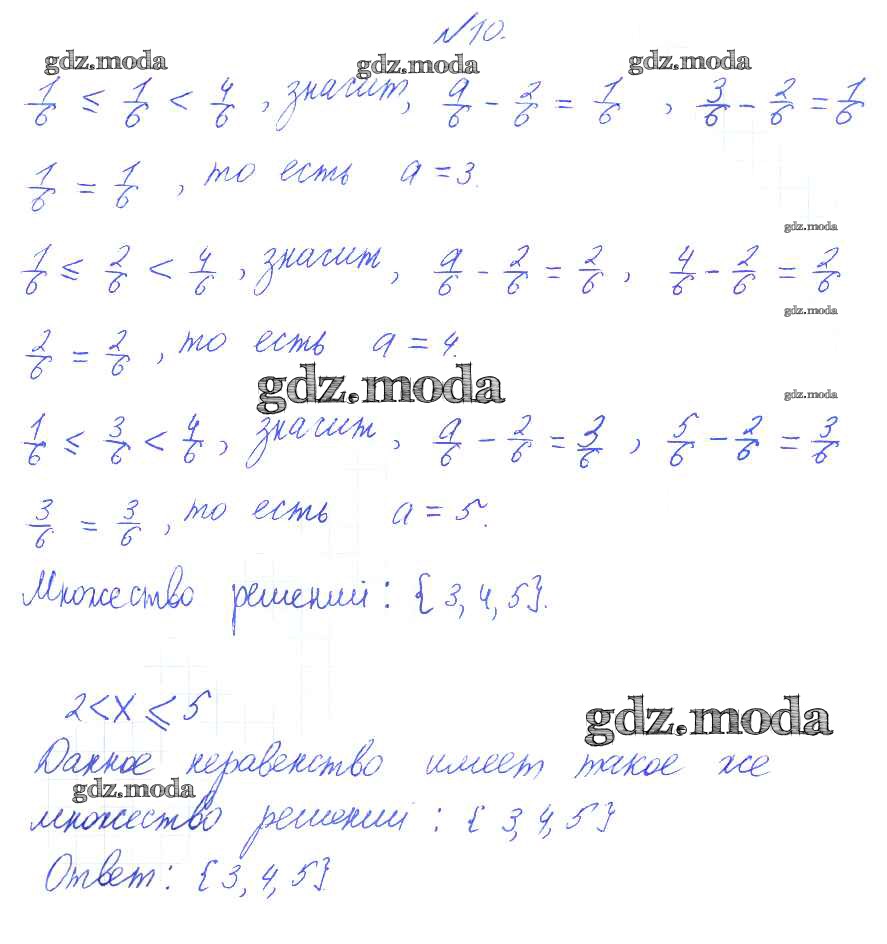 №10.
gdz.moda gdz.moda gdz.moda
1/6 ≤ 1/6 < 4/6 , значит, a/6 - 2/6 = 1/6 , 3/6 - 2/6 = 1/6
1/6 = 1/6 , то есть a = 3.
gdz.moda
1/6 ≤ 2/6 < 4/6 , значит, a/6 - 2/6 = 2/6 , 4/6 - 2/6 = 2/6
gdz.moda
2/6 = 2/6 , то есть a = 4.
gdz.moda gdz.moda
1/6 ≤ 3/6 < 4/6 , значит, a/6 - 2/6 = 3/6 , 5/6 - 2/6 = 3/6
3/6 = 3/6 , то есть a = 5.
Множество решений: {3, 4, 5}.
2 < X ≤ 5
gdz.moda
Данное неравенство имеет такое же
gdz.moda
множество решений : {3, 4, 5}
Ответ: {3, 4, 5}.